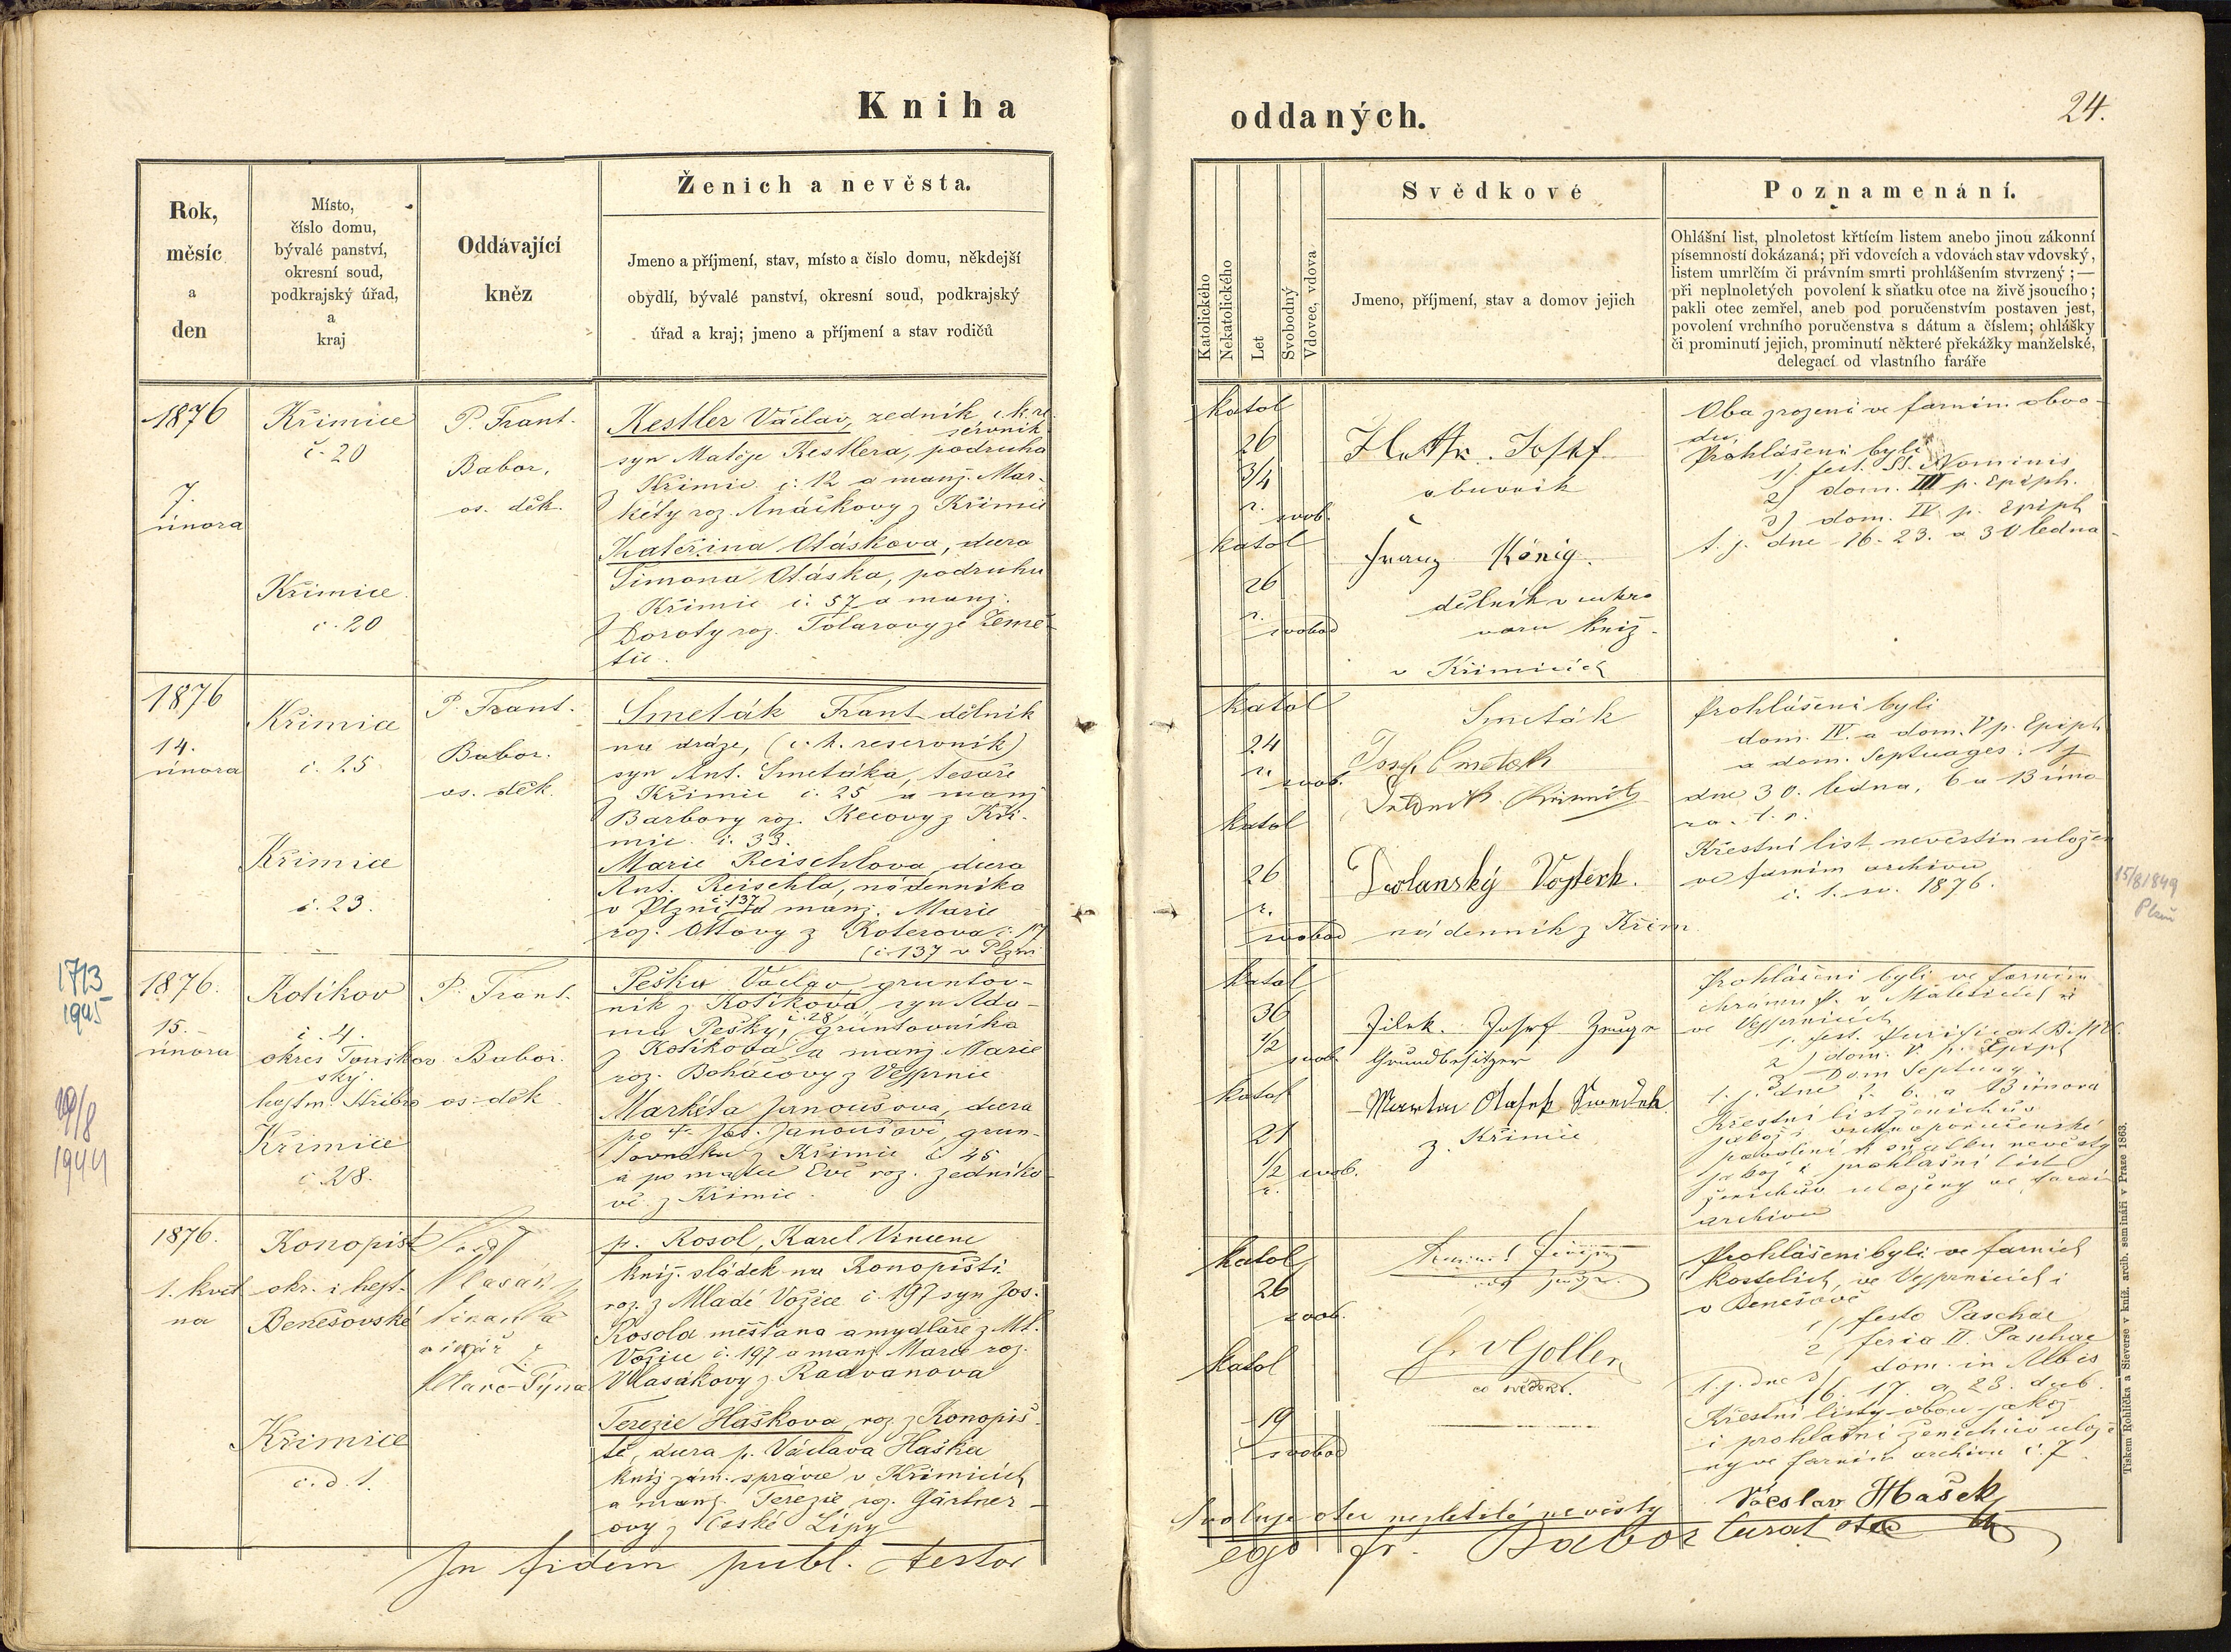 Kniha
oddaných.
24.
Rok,
měsíc
a
den
Místo,
číslo domu,
bývalé panství,
okresní soud,
podkrajský úřad,
a
kraj
Oddávající
kněz
Ženich a nevěsta.
Jmeno a příjmení, stav, místo a číslo domu, někdejší
obydlí, bývalé panství, okresní soud, podkrajský
úřad a kraj; jmeno a příjmení a stav rodičů
Katolického
Nekatolického
Let
Svobodný
Vdovec, vdova
Svědkové
Jmeno, příjmení, stav a domov jejich
Poznamenání.
Ohlášní list, plnoletost křtícím listem anebo jinou zákonní
písemností dokázaná; při vdovcích a vdovách stav vdovský,
listem umrlčím či právním smrti prohlášením stvrzený; —
při neplnoletých povolení k sňatku otce na živě jsoucího;
pakli otec zemřel, aneb pod poručenstvím postaven jest,
povolení vrchního poručenstva s dátum a číslem; ohlášky
či prominutí jejich, prominutí některé překážky manželské,
delegací od vlastního faráře
1876
7.
února
Křimice
č. 20
Křimice
č. 20
P. Frant.
Babor,
os. děk.
Kestler Václav, zedník, c. k. re-
servník
syn Matěje Kestlera, podruha
z Křimic č. 12 a manž. Mar-
kéty roz. z Křimic
Kateřina Otáskova, dcera
Šimona Otáska, podruhu
z Křimic č. 57 a manž.
Doroty roz. Tolarovy ze Země-
tic.
katol
26
3/4
r.
svob.
katol
26
r.
svobod
Josef
obuvník
Franz König.
dělník v cukro
varu kníž.
v Křimicích
Oba zrozeni ve farním obvo-
du.
Prohlášeni byli
1) fest. SS. Nominis
2) dom. III p. Epiph.
3) dom. IV p. Epiph
t. j. dne 16. 23. a 30 ledna
1876
14.
února
Křimice
č. 25
Křimice
č. 23.
P. Frant.
Babor.
os. děk.
Smeták Frant dělník
na dráze, (c. k. reservník)
syn Ant. Smetáka, tesaře
z Křimic č. 25 a manž
Barbory roz. Kecovy z Kři-
mic č. 33.
Marie Reischlova, dcera
Ant. Reischla, nádenníka
v Plzni č 137 a manž. Marie
roz. Ottovy z Koterova č. 17
(č. 137 v Plzni
katol
24
r.
svob.
katol
26
r.
svobod
Smeták
Josef Smetak
Dolanský Vojtěch.
nádenník z Křim
Prohlášeni byli
dom. IV. a dom. V p. Epiph
a dom. Septuages. t j
dne 30. ledna, 6 a 13 úno
ra t. r.
Křestní list nevěstin uložen
ve farním archivu
č. 1. 1876.
15/8 1849
Plzň
1713
1945
19/8
1944
1876.
15.
února
Kotíkov
č. 4.
okres Touškov
ský.
hejtm. Stříbro
Křimice
č. 28.
P. Frant.
Babor.
os. děk
Peška Václav gruntov-
ník z Kotíkova, syn Ada-
ma Pešky, č. 28 gruntovníka
z Kotíkova a manž Marie
roz. Boháčovy z Vejprnic
Markéta Janoušova, dcera
po † Jos. Janoušovi, grun-
tovníku z Křimic č 45
a po matce Evě roz. Zedníko
vé z Křimic.
katol
36
1/2
svob.
katol
21
1/2 svob.
r.
Jilek. Josef Zeuge
Grundbesitzer
Martin Otasek Swedek
z Křimic
Prohlášeni byli ve farním
chrámu P. v Malesicích a
ve Vejprnicích
1. fest. Purificat B. M V.
2) dom. V p. Epiph
3 Dom Septuag.
t. j. dne 2. 6. a 13 února
Křestní list ženichův
jakož i vrchnoporučenské
povolení k sňatku nevěsty
jakož i prohlašní list
ženichův uloženy ve farním
archivu
1876.
1. květ
na
Konopiště
okr. i hejt.
Benešovské
Křimice
č. d. 1.
Vlasák
Týna
p. Rosol, Karel Vincenc
kníž. sládek na Konopišti
roz. z Mladé Vožice č. 197 syn Jos.
Rosola měšťana a mydláře z Ml.
Vožice č. 197 a manž Marie roz.
Vlasákovy z Radvanova
Terezie Haškova, roz. z Konopiš-
tě, dcera p. Václava Haška
kníž zám. správce v Křimicích
a manž. Terezie roz. Gärtner-
ovy z České Lípy
katol
26
svob.
katol
19
svobod
co svědek.
Prohlášeni byli ve farních
kostelích, ve Vejprnicích i
v Benešově
1) festo Paschae
2) feria II. Paschae
3) dom. in Albis
t. j. dne 16. 17. a 23. dub.
Křestní listy obou jakož
i prohlašní ženichův ulože
ny ve farním archivu č. 7.
Svoluje otec nezletilé nevěsty
Václav Hašek
otec
In fidem publ. testor
ego fr. Babor curat
Tiskem Rohlíčka a Sieverse v kníž. arcib. semináři v Praze 1863.